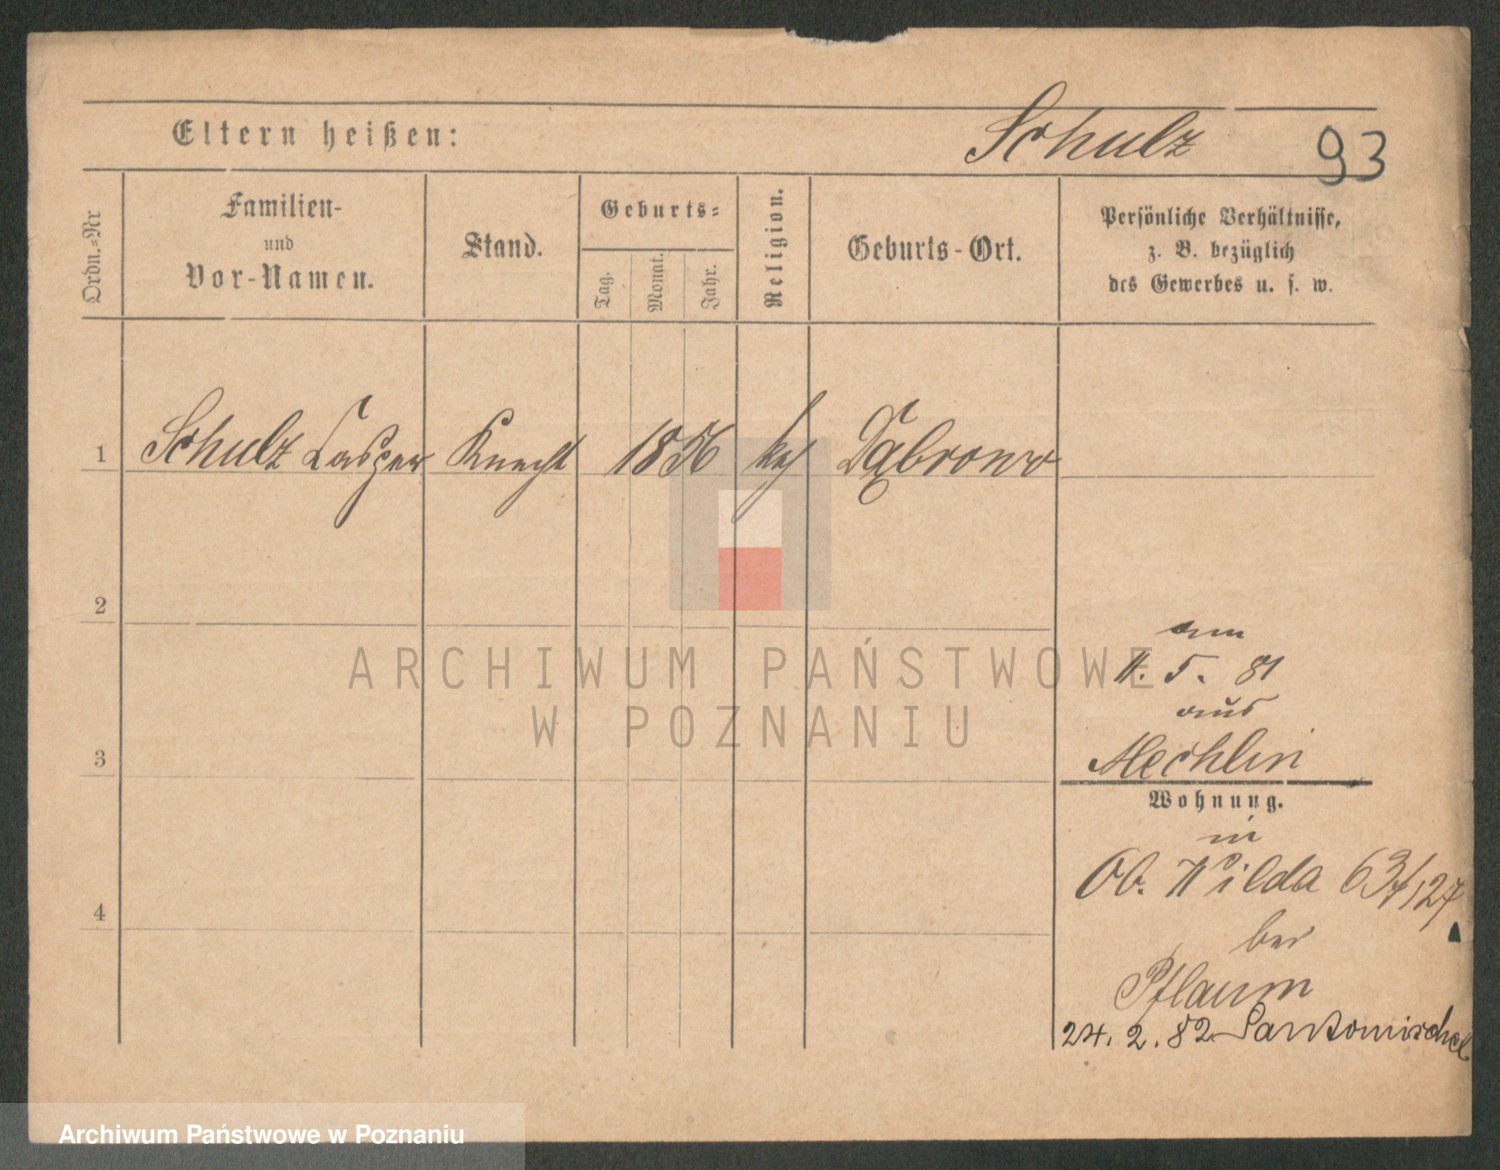 Eltern heißen:
Schulz
93
Ordn.=Nr
Familien-
und
Vor-Namen.
Stand.
Geburts=
Tag.
Monat.
Jahr.
Religion.
Geburts-Ort.
Persönliche Verhältnisse,
z. B. bezüglich
des Gewerbes u. s. w.
1 Schulz Casper Knecht 1856 kath Dąbrowo
2
3
4
am
11. 5. 81
aus
Mechlin
Wohnung.
in
Ob. Wilda 63/127
bei
Pflaum
24. 2. 82 Santomischel
ARCHIWUM PAŃSTWOWE
W POZNANIU
Archiwum Państwowe w Poznaniu